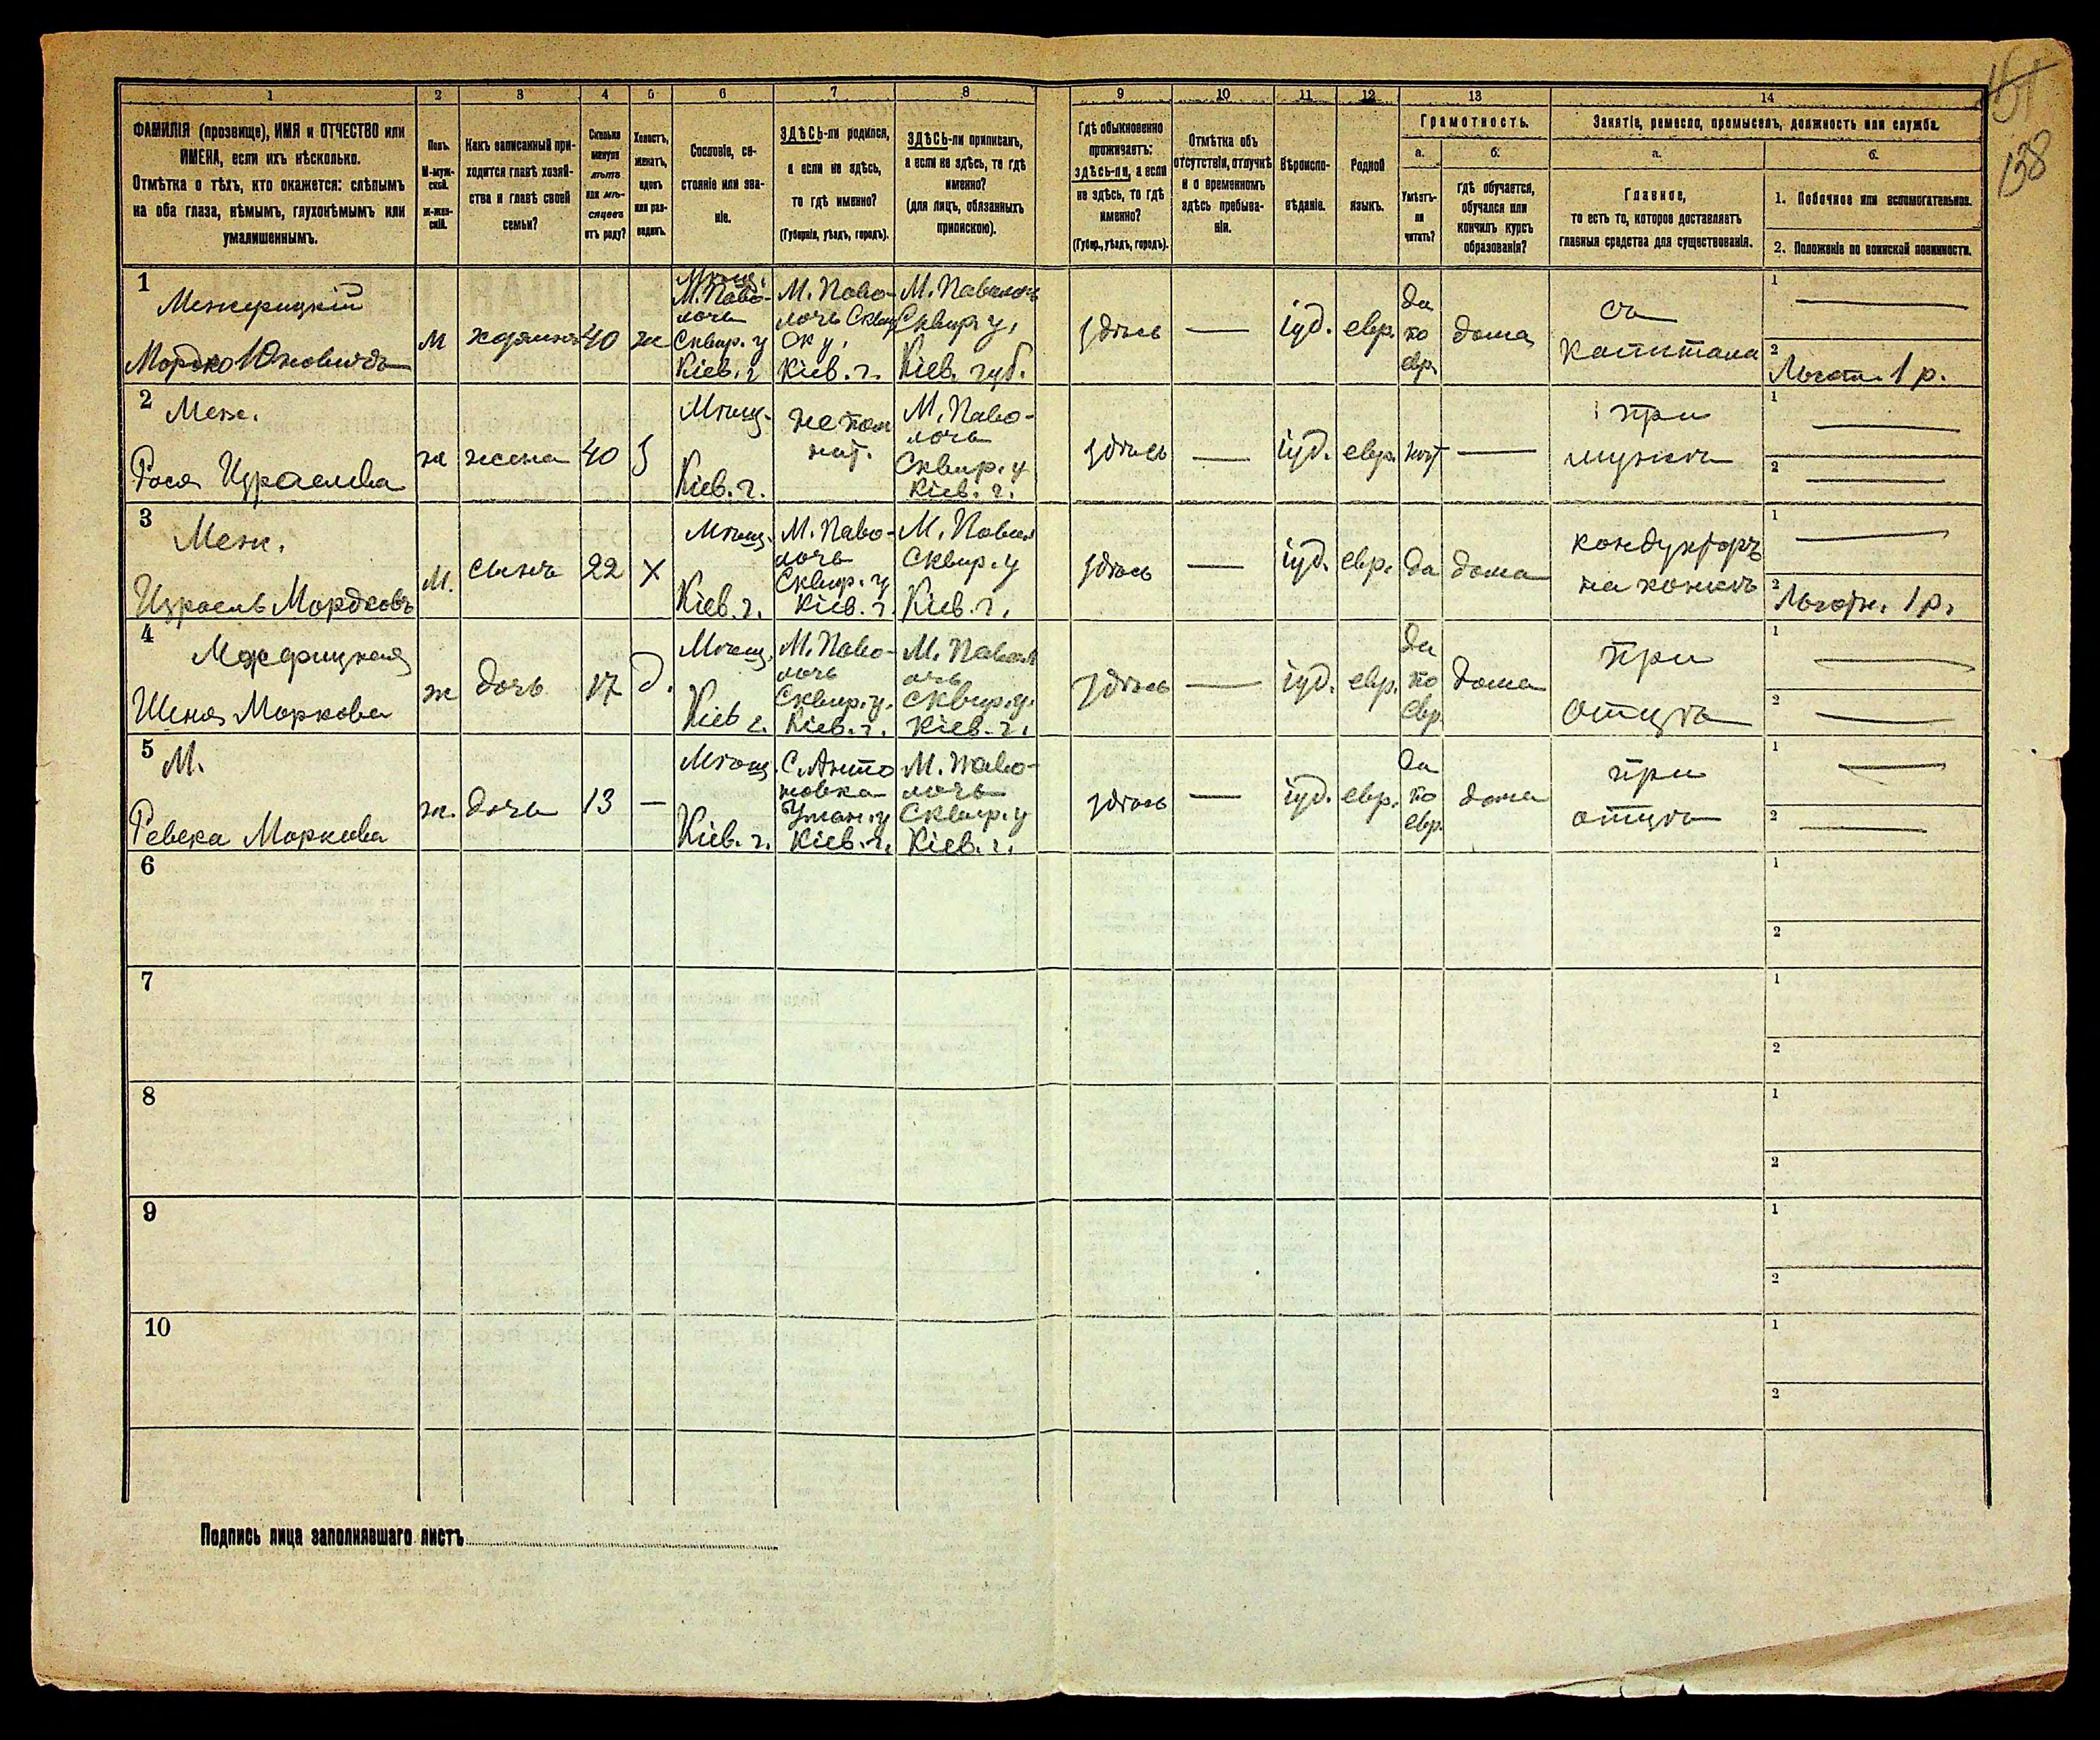 161
138
1 2 3 4 5 6 7 8 9 10 11 12 13 14
ФАМИЛІЯ (прозвище), ИМЯ и ОТЧЕСТВО или
ИМЕНА, если ихъ нѣсколько.
Отмѣтка о тѣхъ, кто окажется: слѣпымъ
на оба глаза, нѣмымъ, глухонѣмымъ или
умалишеннымъ.
Полъ.
М-муж-
ской.
Ж-жен-
скій.
Какъ записанный при-
ходится главѣ хозяй-
ства и главѣ своей
семьи?
Сколько
минуло
лѣтъ
или мѣ-
сяцевъ
отъ роду?
Холостъ,
женатъ,
вдовъ
или раз-
веденъ.
Сословіе, со-
стояніе или зва-
ніе.
ЗДѢСЬ-ли родился,
а если не здѣсь,
то гдѣ именно?
(Губернія, уѣздъ, городъ).
ЗДѢСЬ-ли приписанъ,
а если не здѣсь, то гдѣ
именно?
(для лицъ, обязанныхъ
припискою).
Гдѣ обыкновенно
проживаетъ:
здѣсь-ли, а если
не здѣсь, то гдѣ
именно?
(Губер., уѣздъ, городъ).
Отмѣтка объ
отсутствіи, отлучкѣ
и о временномъ
здѣсь пребыва-
ніи.
Вѣроиспо-
вѣданіе.
Родной
языкъ.
Грамотность.
а.
Умѣетъ-
ли
читать?
б.
гдѣ обучается,
обучался или
кончилъ курсъ
образованія?
Занятіе, ремесло, промыселъ, должность или служба.
а.
Главное,
то есть то, которое доставляетъ
главныя средства для существованія.
б.
1. Побочное или вспомогательное.
2. Положеніе по воинской повинности.
1
Межерицкій
Мордко Юновичъ
м
хозяинъ
40
ж
Мѣщ.
М. Паво-
лочь
Сквир. у
Кіев. г
М. Паво-
лочь Сквир
ск у.
Кіев. г.
М. Паволочь
Сквир у,
Кіев. губ.
здѣсь
—
іуд.
евр.
да
по
евр.
дома
съ
капитала
1 —
2 Льготн. 1 р.
2
Меж.
Рося Израилева
ж
жена
40
З
Мѣщ.
Кіев. г.
не пом
нит.
М. Паво-
лочь
Сквир. у
Кіев. г.
здѣсь
—
іуд.
евр.
нѣт
—
при
мужѣ
1 —
2 —
3
Меж.
Израель Мордковъ
М.
сынъ
22
X
Мѣщ.
Кіев. г.
М. Паво-
лочь
Сквир. у
Кіев. г.
М. Павол
Сквир. у
Кіев. г.
здѣсь
—
іуд.
евр.
да
дома
кондукторъ
на конкѣ
1 —
2 Льготн. 1 р.
4
Межерицкая
Шеня Маркова
ж
дочь
17
д.
Мѣщ.
Кіев г.
М. Паво-
лочь
Сквир. у.
Кіев. г.
М. Павол
очь
Сквир. у.
Кіев. г.
здѣсь
—
іуд.
евр.
да
по
евр.
дома
при
отцѣ
1 —
2 —
5
М.
Ревека Маркова
ж.
дочь
13
—
Мѣщ.
Кіев. г.
С. Анто
новка
Уман. у
Кіев. г.
М. Паво-
лочь
Сквир. у
Кіев. г.
здѣсь
—
іуд.
евр.
да
по
евр.
дома
при
отцѣ
1 —
2 —
6
1
2
7
1
2
8
1
2
9
1
2
10
1
2
Подпись лица заполнявшаго листъ